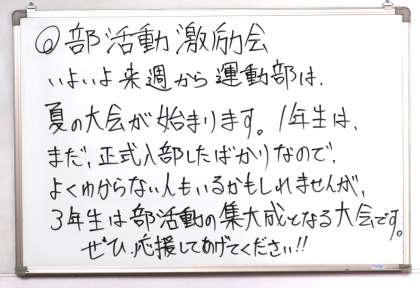 ◎部活動激励会
いよいよ来週から運動部は、
夏の大会が始まります。1年生は、
まだ、正式入部したばかりなので、
よくわからない人もいるかもしれませんが、
3年生は部活動の集大成となる大会です。
ぜひ、応援してあげてください!!